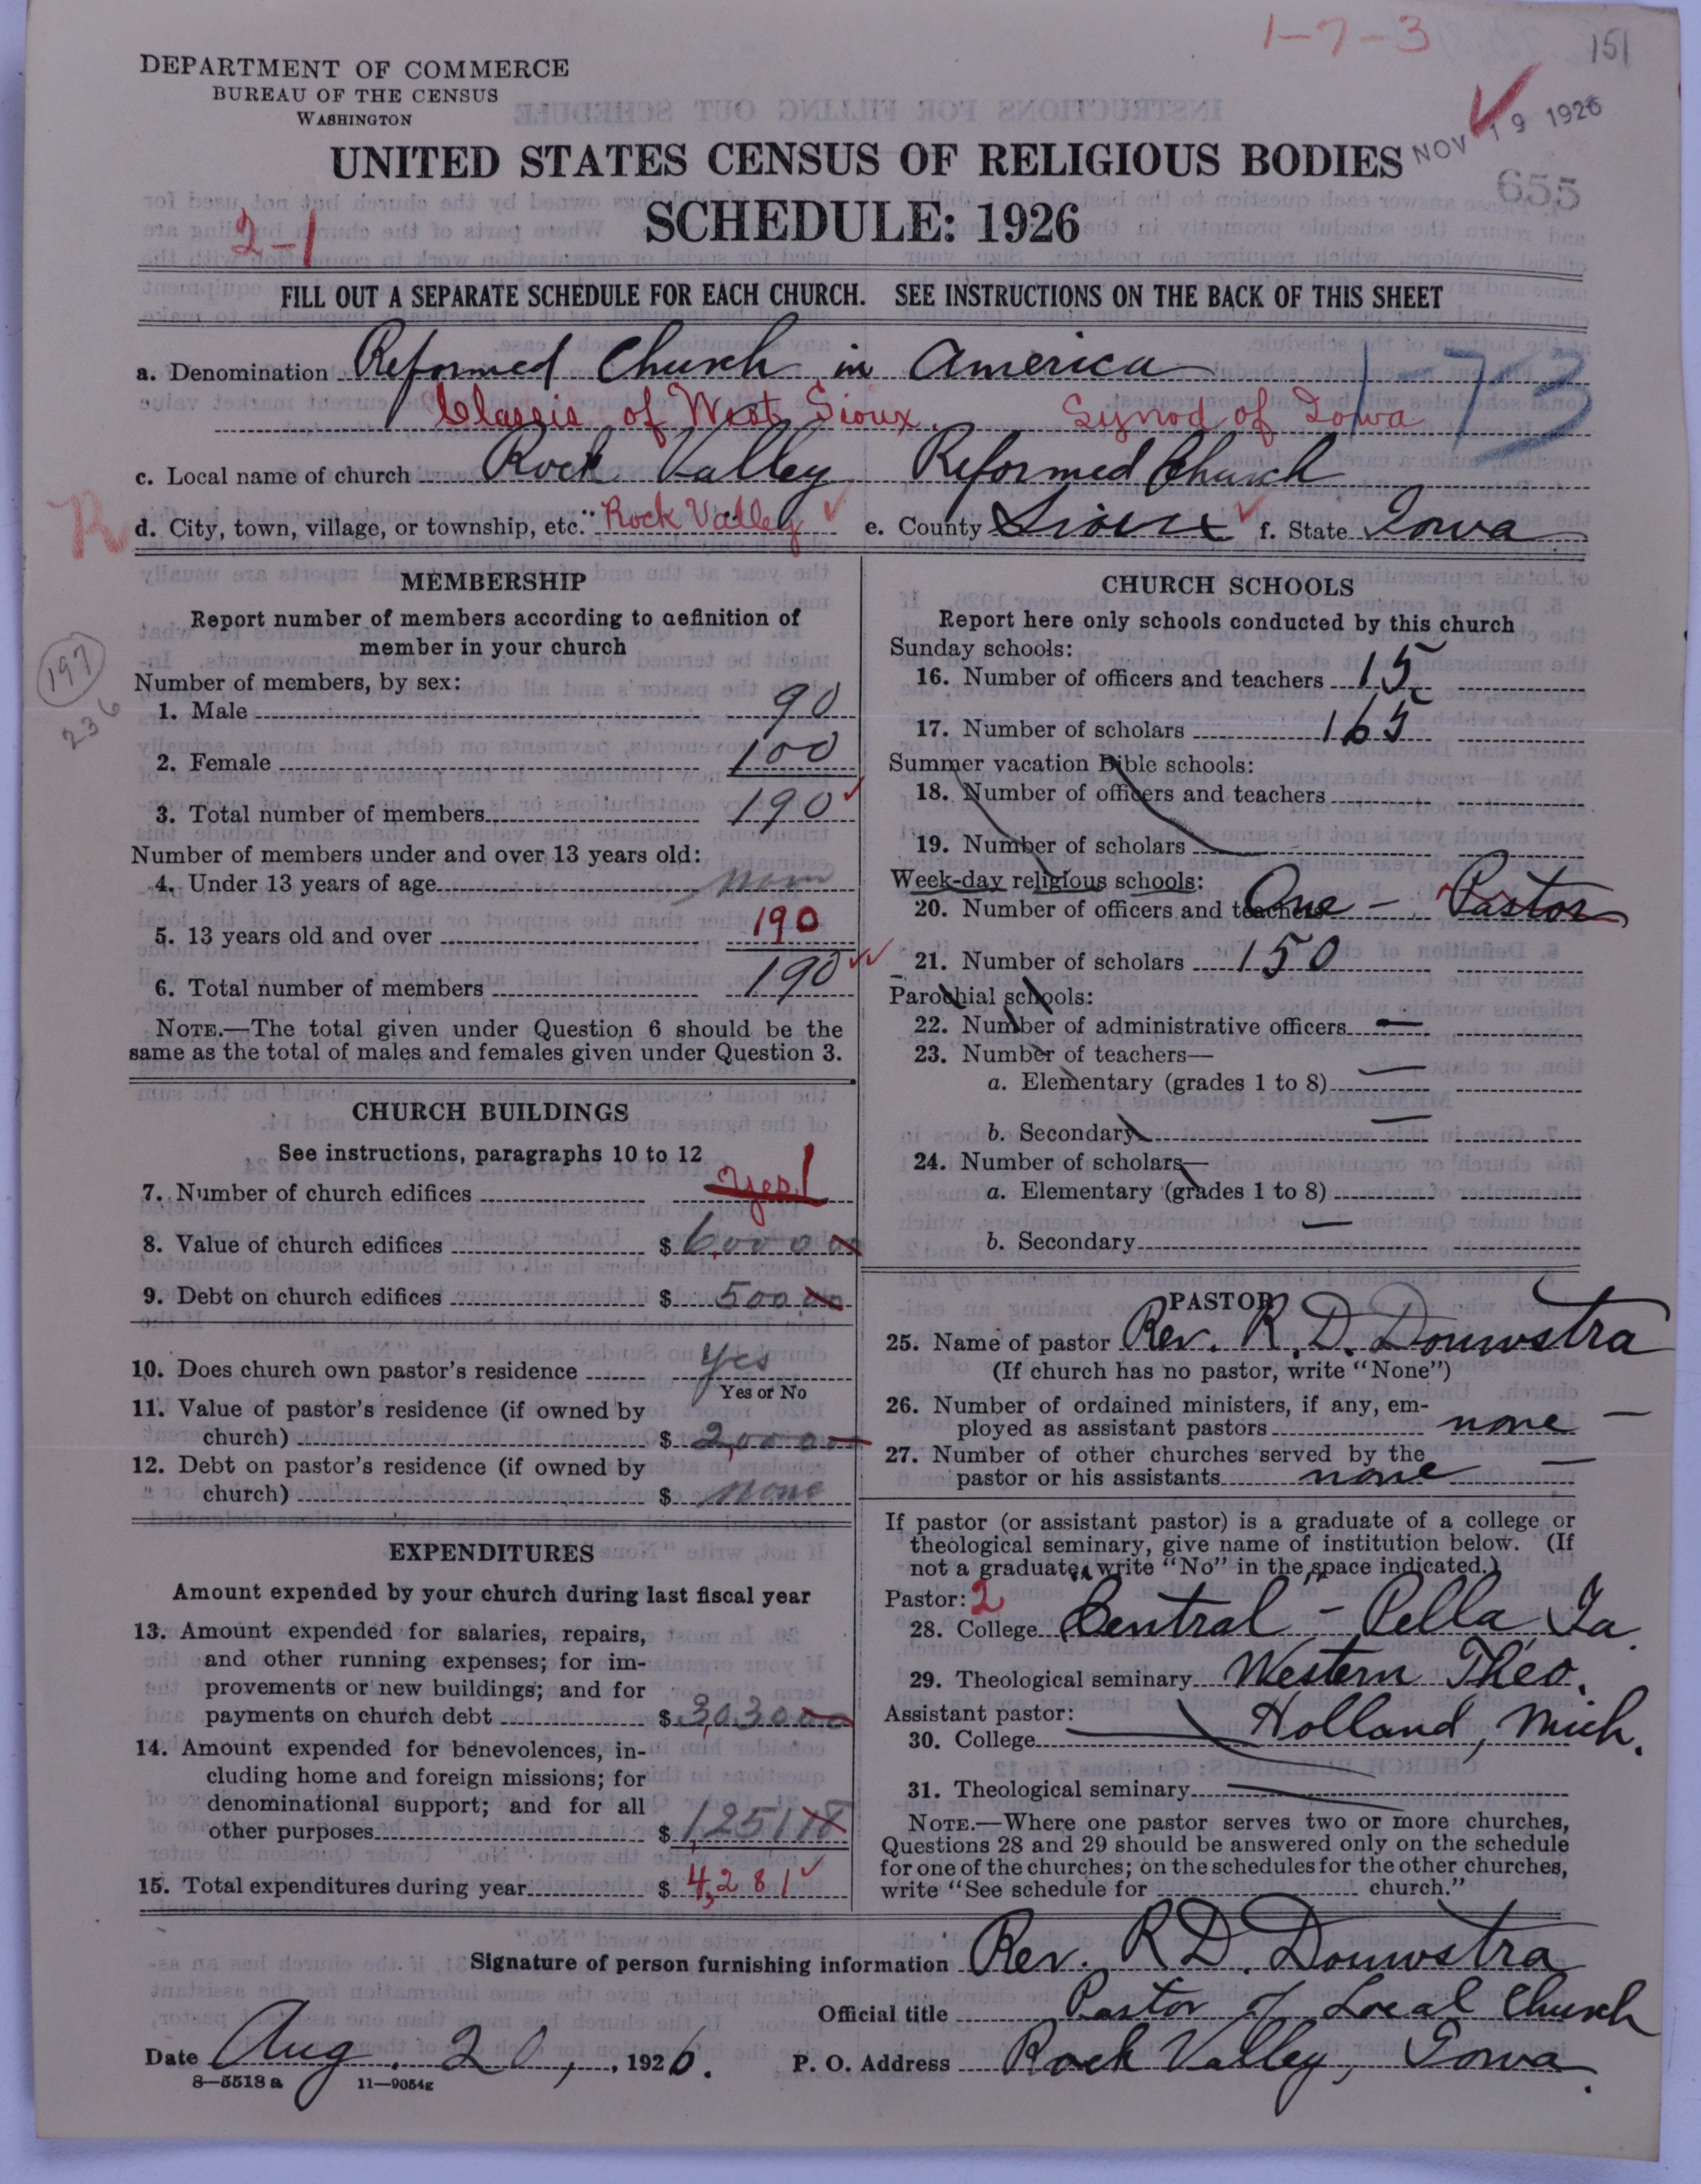 1-7-3
151
DEPARTMENT OF COMMERCE
BUREAU OF THE CENSUS
WASHINGTON
NOV 19 1926
655
UNITED STATES CENSUS OF RELIGIOUS BODIES
SCHEDULE: 1926
2-1
FILL OUT A SEPARATE SCHEDULE FOR EACH CHURCH. SEE INSTRUCTIONS ON THE BACK OF THIS SHEET
a. Denomination Reformed Church in America
1-73
Classis of West Sioux. Synod of Iowa
c. Local name of church Rock Valley Reformed Church
R
d. City, town, village, or township, etc. Rock Valley e. County Sioux f. State Iowa
MEMBERSHIP
Report number of members according to definition of
member in your church
197
236
Number of members, by sex:
1. Male 90
2. Female 100
3. Total number of members 190
Number of members under and over 13 years old:
4. Under 13 years of age none
5. 13 years old and over 190
6. Total number of members 190
NOTE.—The total given under Question 6 should be the
same as the total of males and females given under Question 3.
CHURCH BUILDINGS
See instructions, paragraphs 10 to 12
7. Number of church edifices yes 1
8. Value of church edifices $ 6,000 00
9. Debt on church edifices $ 500.00
10. Does church own pastor's residence yes
Yes or No
11. Value of pastor's residence (if owned by
church) $ 2,000
12. Debt on pastor's residence (if owned by
church) $ none
EXPENDITURES
Amount expended by your church during last fiscal year
13. Amount expended for salaries, repairs,
and other running expenses; for im-
provements or new buildings; and for
payments on church debt $ 3,030 00
14. Amount expended for benevolences, in-
cluding home and foreign missions; for
denominational support; and for all
other purposes $ 1,251 18
15. Total expenditures during year $ 4,281
CHURCH SCHOOLS
Report here only schools conducted by this church
Sunday schools:
16. Number of officers and teachers 15
17. Number of scholars 165
Summer vacation Bible schools:
18. Number of officers and teachers
19. Number of scholars
Week-day religious schools:
20. Number of officers and teachers One - Pastor
21. Number of scholars 150
Parochial schools:
22. Number of administrative officers —
23. Number of teachers—
a. Elementary (grades 1 to 8) —
b. Secondary —
24. Number of scholars—
a. Elementary (grades 1 to 8)
b. Secondary —
PASTOR
25. Name of pastor Rev. R. D. Douwstra
(If church has no pastor, write "None")
26. Number of ordained ministers, if any, em-
ployed as assistant pastors none —
27. Number of other churches served by the
pastor or his assistants none —
If pastor (or assistant pastor) is a graduate of a college or
theological seminary, give name of institution below. (If
not a graduate, write "No" in the space indicated.)
Pastor: 2
28. College Central - Pella Ia.
29. Theological seminary Western Theo.
Assistant pastor: Holland, Mich.
30. College
31. Theological seminary
NOTE.—Where one pastor serves two or more churches,
Questions 28 and 29 should be answered only on the schedule
for one of the churches; on the schedules for the other churches,
write "See schedule for church."
Signature of person furnishing information Rev. R D. Douwstra
Official title Pastor of Local Church
Date Aug. 20, 1926. P. O. Address Rock Valley, Iowa.
8—5518 a 11—9054g